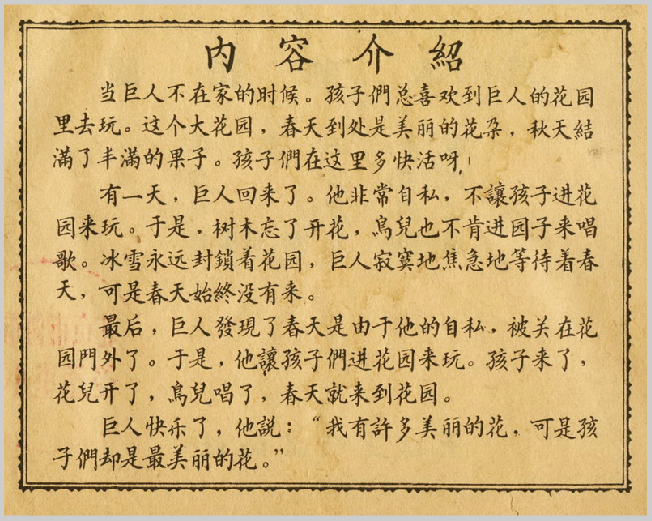 内容介紹
当巨人不在家的时候。孩子們总喜欢到巨人的花园
里去玩。这个大花园，春天到处是美丽的花朵，秋天結
滿了丰滿的果子。孩子們在这里多快活呀！
有一天，巨人回来了。他非常自私，不讓孩子进花
园来玩。于是，树木忘了开花，鳥兒也不肯进园子来唱
歌。冰雪永远封鎖着花园，巨人寂寞地焦急地等待着春
天，可是春天始終没有来。
最后，巨人發現了春天是由于他的自私，被关在花
园門外了。于是，他讓孩子們进花园来玩。孩子来了，
花兒开了，鳥兒唱了，春天就来到花园。
巨人快乐了，他說：“我有許多美丽的花，可是孩
子們却是最美丽的花。”